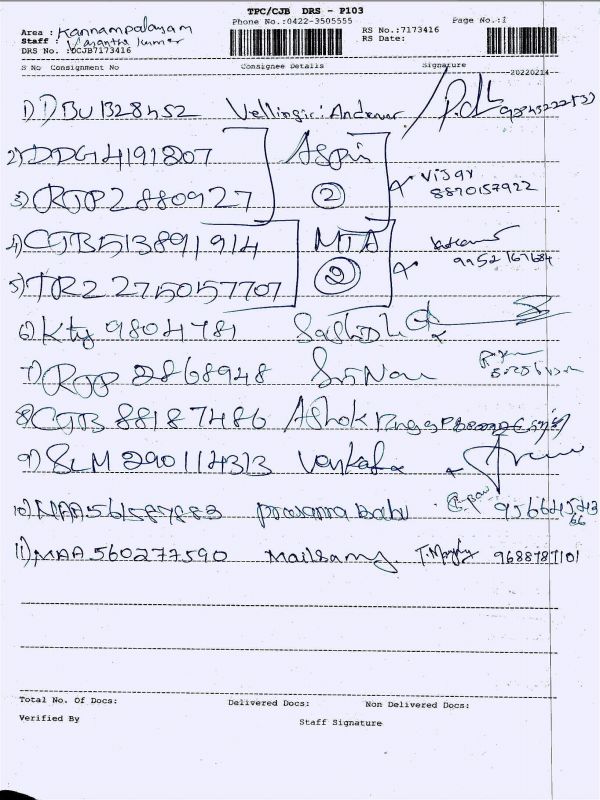 TPC/CJB DRS - P103
Phone No.:0422-3505555
Page No.:1
Area : Kannampalayam
Staff : Vasantha kumar
DRS No. :DCJB7173416
RS No.:7173416
RS Date:
S No Consignment No Consignee Details Signature
20220214
1) DBU1328452 Vellingiri Andavar
2) DDG4191807 Aspi
3) RJP2880927 2 Vijay 8870157922
4) CJB513891914 MTA
5) TR2 27150157707 2 9952167684
6) Kty 9804781
7) RJP 2868948 Sri
8) CJB 88187486 Ashok
9) SLM 290114313 Venkat
10) MAA561587883 prasanna Babu
11) MAA560277590 Mailsamy 9688787101
Total No. Of Docs: Delivered Docs: Non Delivered Docs:
Verified By Staff Signature